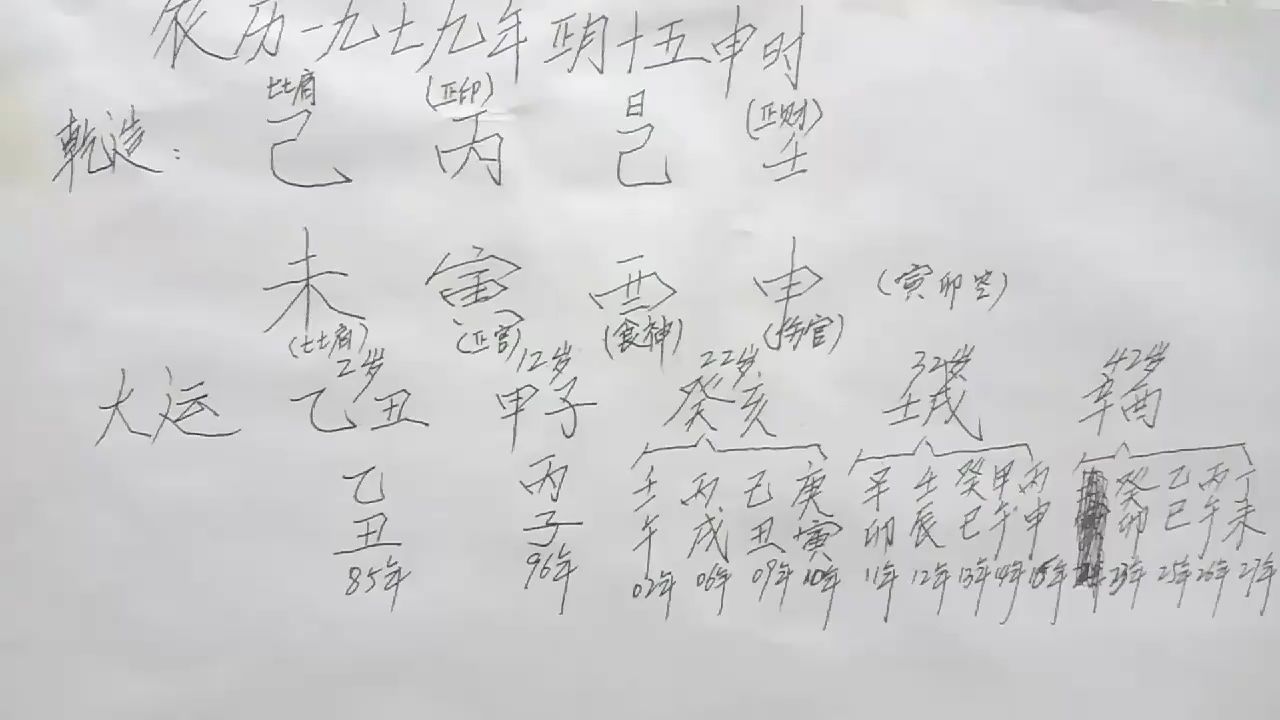 农历一九七九年正月十五申时
比肩 (正印) 日 (正财)
乾造： 己 丙 己 壬
未 寅 酉 申 (寅卯空)
(比肩) (正官) (食神) (伤官)
2岁 12岁 22岁 32岁 42岁
大运 乙丑 甲子 癸亥 壬戌 辛酉
乙丑 丙子 壬午 丙戌 己丑 庚寅 辛卯 壬辰 癸巳 甲午 丙申 癸卯 乙巳 丙午 丁未
85年 96年 02年 06年 09年 10年 11年 12年 13年 14年 23年 25年 26年 27年